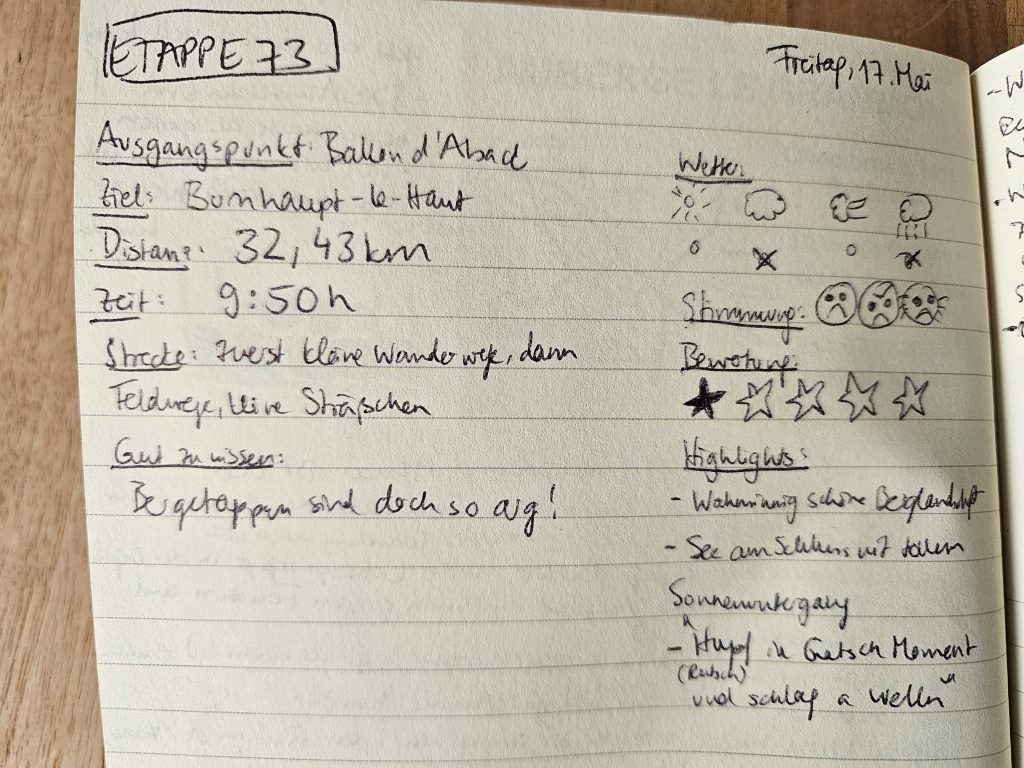 ETAPPE 73
Freitag, 17. Mai
Ausgangspunkt: Ballon d'Abacl
Ziel: Burnhaupt-le-Haut
Distanz: 32,43 km
Zeit: 9:50 h
Strecke: Zuerst kleine Wanderwege, dann
Feldwege, kleine Sträßchen
Gut zu wissen:
Bergetappen sind doch so arg!
Wetter:
Stimmung:
Bewertung:
Highlights:
- Wahnsinnig schöne Berglandschaft
- See am Schluss mit tollem
Sonnenuntergang
- "Hupf in Gatsch Moment
(Rutsch)
und schlag a Welln"